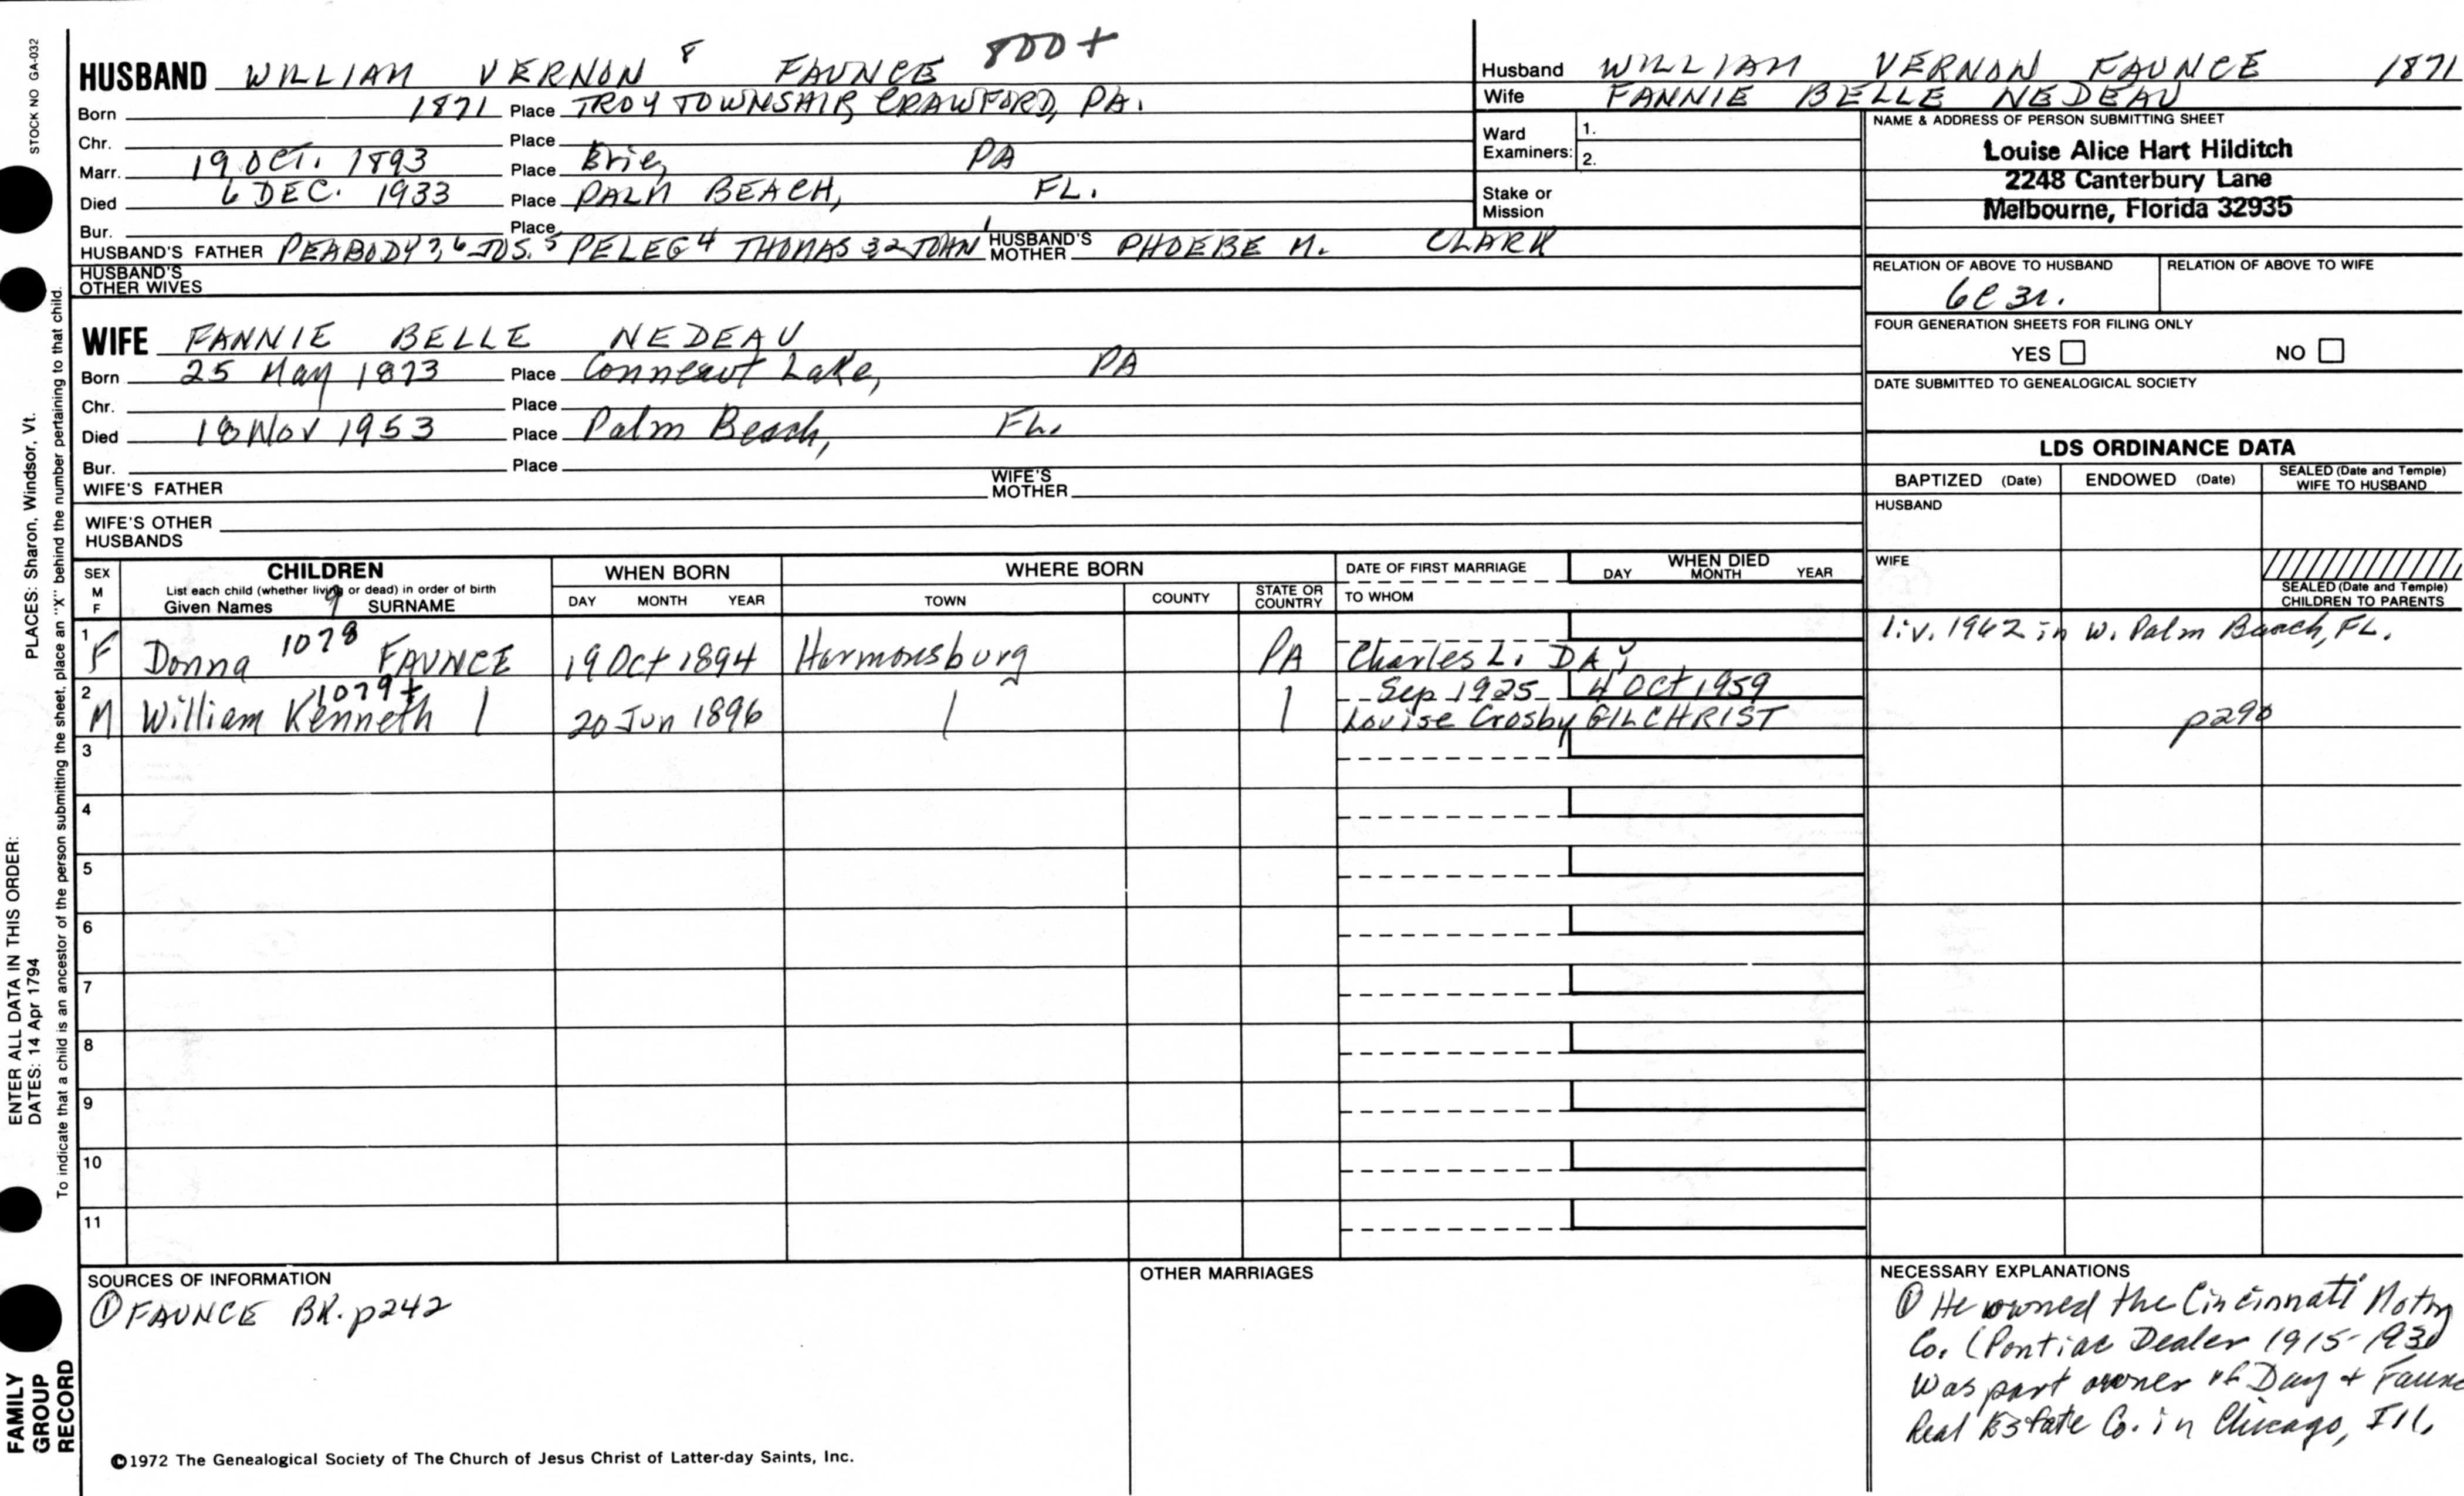 STOCK NO GA-032
HUSBAND WILLIAM VERNON 8 FAUNCE 800+
Born 1871 Place TROY TOWNSHIP, CRAWFORD, PA.
Chr. Place
Marr. 19 OCT. 1893 Place Erie, PA
Died 6 DEC. 1933 Place PALM BEACH, FL.
Bur. Place
HUSBAND'S FATHER PEABODY 7, 6 JOS. 5 PELEG 4 THOMAS 3 2 JOHN 1 HUSBAND'S MOTHER PHOEBE M. CLARK
HUSBAND'S OTHER WIVES
WIFE FANNIE BELLE NEDEAU
Born 25 May 1873 Place Conneaut Lake, PA
Chr. Place
Died 18 Nov 1953 Place Palm Beach, FL.
Bur. Place
WIFE'S FATHER WIFE'S MOTHER
WIFE'S OTHER HUSBANDS
Husband WILLIAM VERNON FAUNCE 1871
Wife FANNIE BELLE NEDEAU
Ward Examiners: 1.
2.
Stake or Mission
NAME & ADDRESS OF PERSON SUBMITTING SHEET
Louise Alice Hart Hilditch
2248 Canterbury Lane
Melbourne, Florida 32935
RELATION OF ABOVE TO HUSBAND RELATION OF ABOVE TO WIFE
6C 3r.
FOUR GENERATION SHEETS FOR FILING ONLY
YES NO
DATE SUBMITTED TO GENEALOGICAL SOCIETY
LDS ORDINANCE DATA
BAPTIZED (Date) ENDOWED (Date) SEALED (Date and Temple) WIFE TO HUSBAND
HUSBAND
WIFE
SEALED (Date and Temple) CHILDREN TO PARENTS
SEX M F CHILDREN WHEN BORN WHERE BORN DATE OF FIRST MARRIAGE WHEN DIED
List each child (whether living or dead) in order of birth
Given Names 9 SURNAME DAY MONTH YEAR TOWN COUNTY STATE OR COUNTRY TO WHOM DAY MONTH YEAR
1 F Donna 1078 FAUNCE 19 Oct 1894 Harmonsburg PA Charles L. DAY liv. 1962 in W. Palm Beach, FL.
2 M William Kenneth 1079+ | 20 Jun 1896 | | Sep 1925 4 Oct 1959
Louise Crosby GILCHRIST p290
3
4
5
6
7
8
9
10
11
SOURCES OF INFORMATION
① FAUNCE BK. p242
OTHER MARRIAGES
NECESSARY EXPLANATIONS
① He owned the Cincinnati Motor
Co. (Pontiac Dealer 1915-1930
Was part owner of Day + Faunce
Real Estate Co. in Chicago, Ill.
©1972 The Genealogical Society of The Church of Jesus Christ of Latter-day Saints, Inc.
ENTER ALL DATA IN THIS ORDER: PLACES: Sharon, Windsor, Vt.
DATES: 14 Apr 1794
To indicate that a child is an ancestor of the person submitting the sheet, place an "X" behind the number pertaining to that child.
FAMILY
GROUP
RECORD